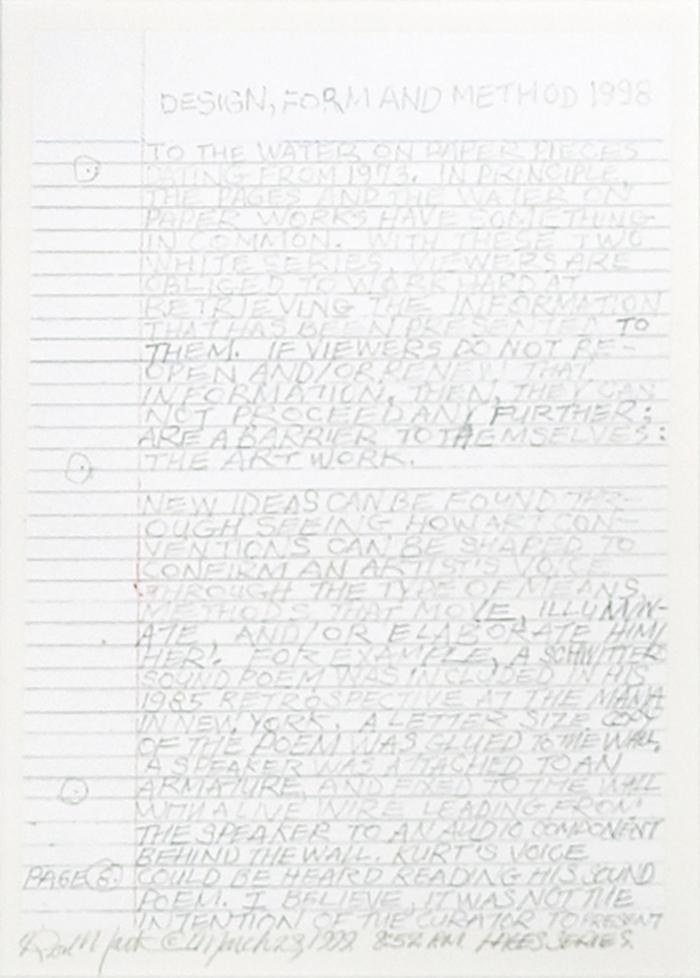 DESIGN, FORM AND METHOD 1998
TO THE WATER ON PAPER PIECES
DATING FROM 1973. IN PRINCIPLE,
THE PAGES AND THE WATER ON
PAPER WORKS HAVE SOMETHING
IN COMMON. WITH THESE TWO
WHITE SERIES, VIEWERS ARE
OBLIGED TO WORK HARD AT
RETRIEVING THE INFORMATION
THAT HAS BEEN PRESENTED TO
THEM. IF VIEWERS DO NOT RE-
OPEN AND/OR RENEW THAT
INFORMATION, THEN, THEY CAN
NOT PROCEED ANY FURTHER;
ARE A BARRIER TO THEMSELVES:
THE ART WORK.
NEW IDEAS CAN BE FOUND THR-
OUGH SEEING HOW ART CON-
VENTIONS CAN BE SHAPED TO
CONFIRM AN ARTIST'S VOICE
THROUGH THE TYPE OF MEANS,
METHODS THAT MOVE, ILLUMIN-
ATE, AND/OR ELABORATE HIM/
HER. FOR EXAMPLE, A SCHWITTER
SOUND POEM WAS INCLUDED IN HIS
1985 RETROSPECTIVE AT THE
IN NEW YORK. A LETTER SIZE COPY
OF THE POEM WAS GLUED TO THE WALL.
A SPEAKER WAS ATTACHED TO AN
ARMATURE, AND FIXED TO THE WALL
WITH A LIVE WIRE LEADING FROM
THE SPEAKER TO AN AUDIO COMPONENT
BEHIND THE WALL. KURT'S VOICE
PAGE 6. COULD BE HEARD READING HIS SOUND
POEM. I BELIEVE, IT WAS NOT THE
INTENTION OF THE CURATOR TO PRESENT
© March 23, 1998 8:52 AM SERIES.